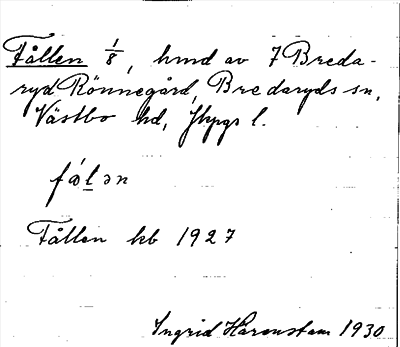 Fållen 1/8, hmd av 7 Breda-
ryd Rönnegård, Bredaryds sn,
Västbo hd, Jkpgs l.
fá̊l̲ən
Fållen kb 1927
Ingrid Harenstam 1930